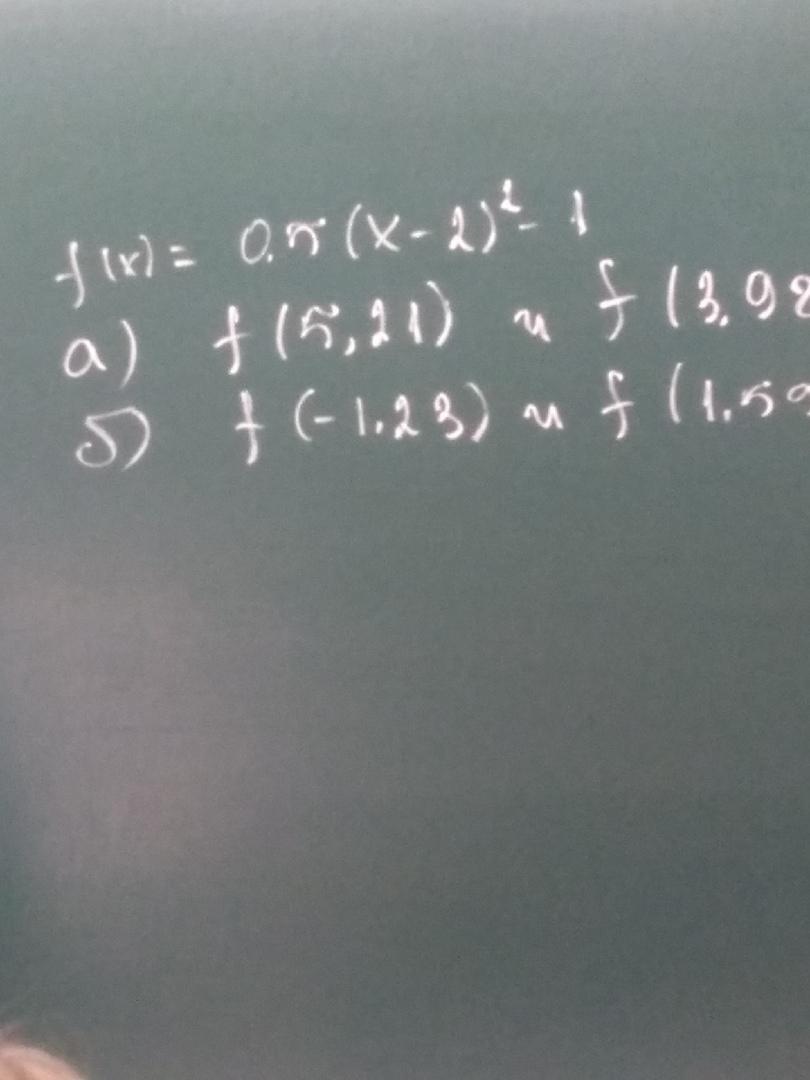 f(x) = 0.5(x-2)² - 1
а) f(5,21) и f(3.98
б) f(-1.23) и f(1.59